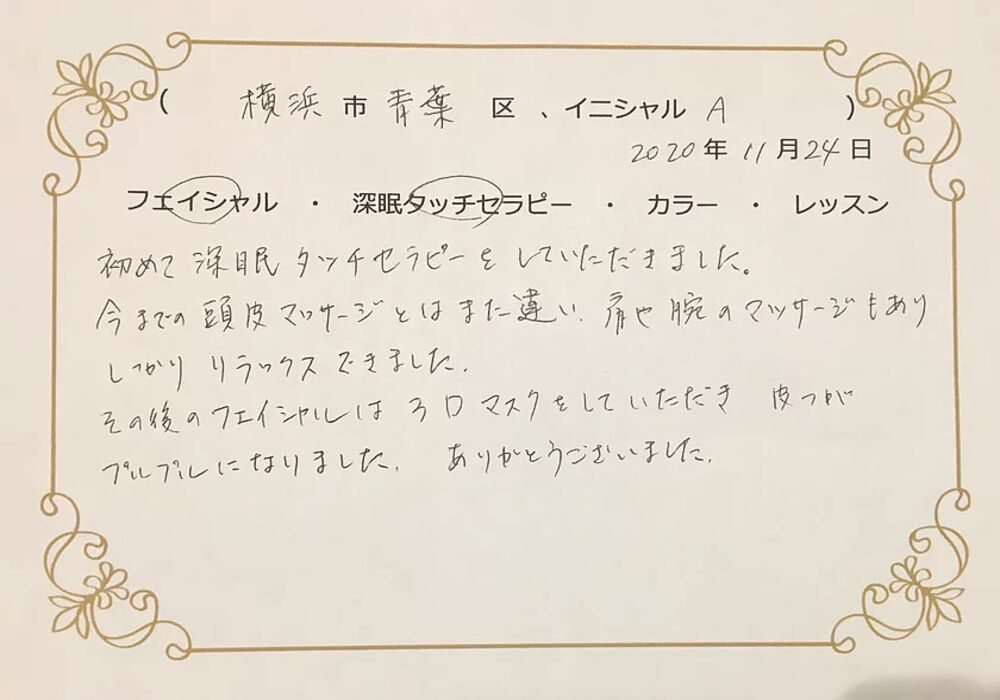 ( 横浜 市 青葉 区 、イニシャル A )
2020 年 11 月 24 日
フェイシャル ・ 深眠タッチセラピー ・ カラー ・ レッスン
初めて 深眠 タッチセラピーを していただきました。
今までの 頭皮マッサージとは また 違い、肩や 腕のマッサージもあり
しっかり リラックス できました。
その後のフェイシャルは 3D マスクをしていただき 皮フが
プルプルになりました。 ありがとうございました。